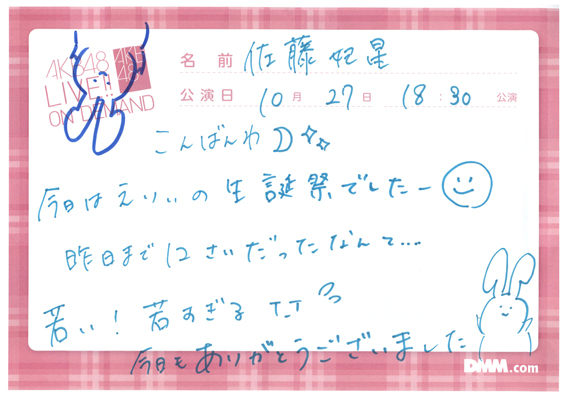 AKB48
LIVE!!
ON DEMAND
名前 佐藤妃星
公演日 10月 27日 18:30 公演
こんばんわ
今日はえりぃの生誕祭でしたー
昨日まで12さいだったなんて...
若い! 若すぎる T_T
今日もありがとうございました
DMM.com